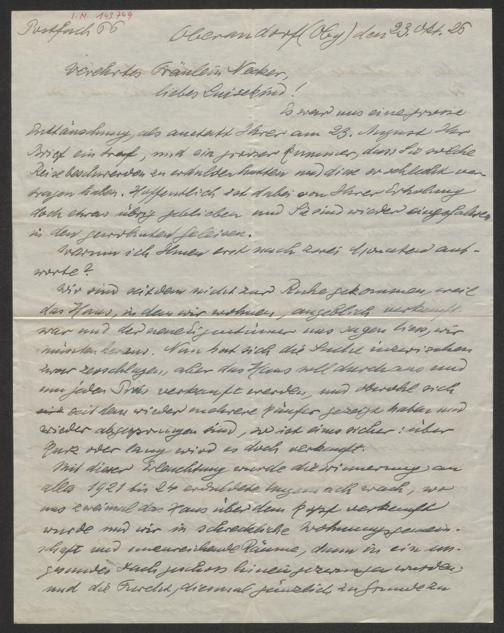 I.N. 149.749
Postfach 66
Oberaudorf (Oby) den 23. Okt. 26
Verehrtes Fräulein Necker,
liebes Luisekind!
Es war uns eine grosse
Enttäuschung, als anstatt Ihrer am 23. August Ihr
Brief eintraf, und ein grosser Kummer, dass Sie solche
Reisebeschwerden zu erdulden hatten und diese so schlecht ver-
tragen haben. Hoffentlich ist dabei von Ihrer Erholung
doch etwas übrig geblieben und Sie sind wieder eingefahren
in den gewohnten Geleisen.
Warum ich Ihnen erst nach zwei Monaten ant-
worte?
Wir sind seitdem nicht zur Ruhe gekommen, weil
das Haus, in dem wir wohnen, angeblich verkauft
war und der neue Eigentümer uns sagen liess, wir
müssten heraus. Nun hat sich die Sache inzwischen
zwar zerschlagen, aber das Haus soll durchaus und
um jeden Preis verkauft werden, und obwohl sich
seitdem wieder mehrere Käufer gezeigt haben und
wieder abgesprungen sind, so ist eines sicher: über
kurz oder lang wird es doch verkauft.
Mit dieser Beleuchtung wurde die Erinnerung an
alles 1921 bis 24 erduldete Ungemach wach, wo
uns zweimal das Haus über dem Kopf verkauft
wurde und wir in schreckliche Wohnungsgemein-
schaft und unzureichende Räume, dann in ein un-
gesundes Dachgeschoss hineingezwungen wurden,
und die Furcht, diesmal gänzlich zu Grunde zu